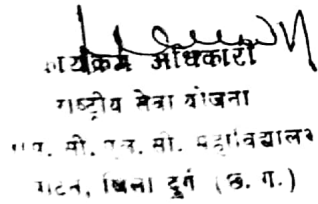 कार्यक्रम अधिकारी
राष्ट्रीय सेवा योजना
सी. एल. सी. महाविद्यालय
पाटन, जिला दुर्ग (छ. ग.)